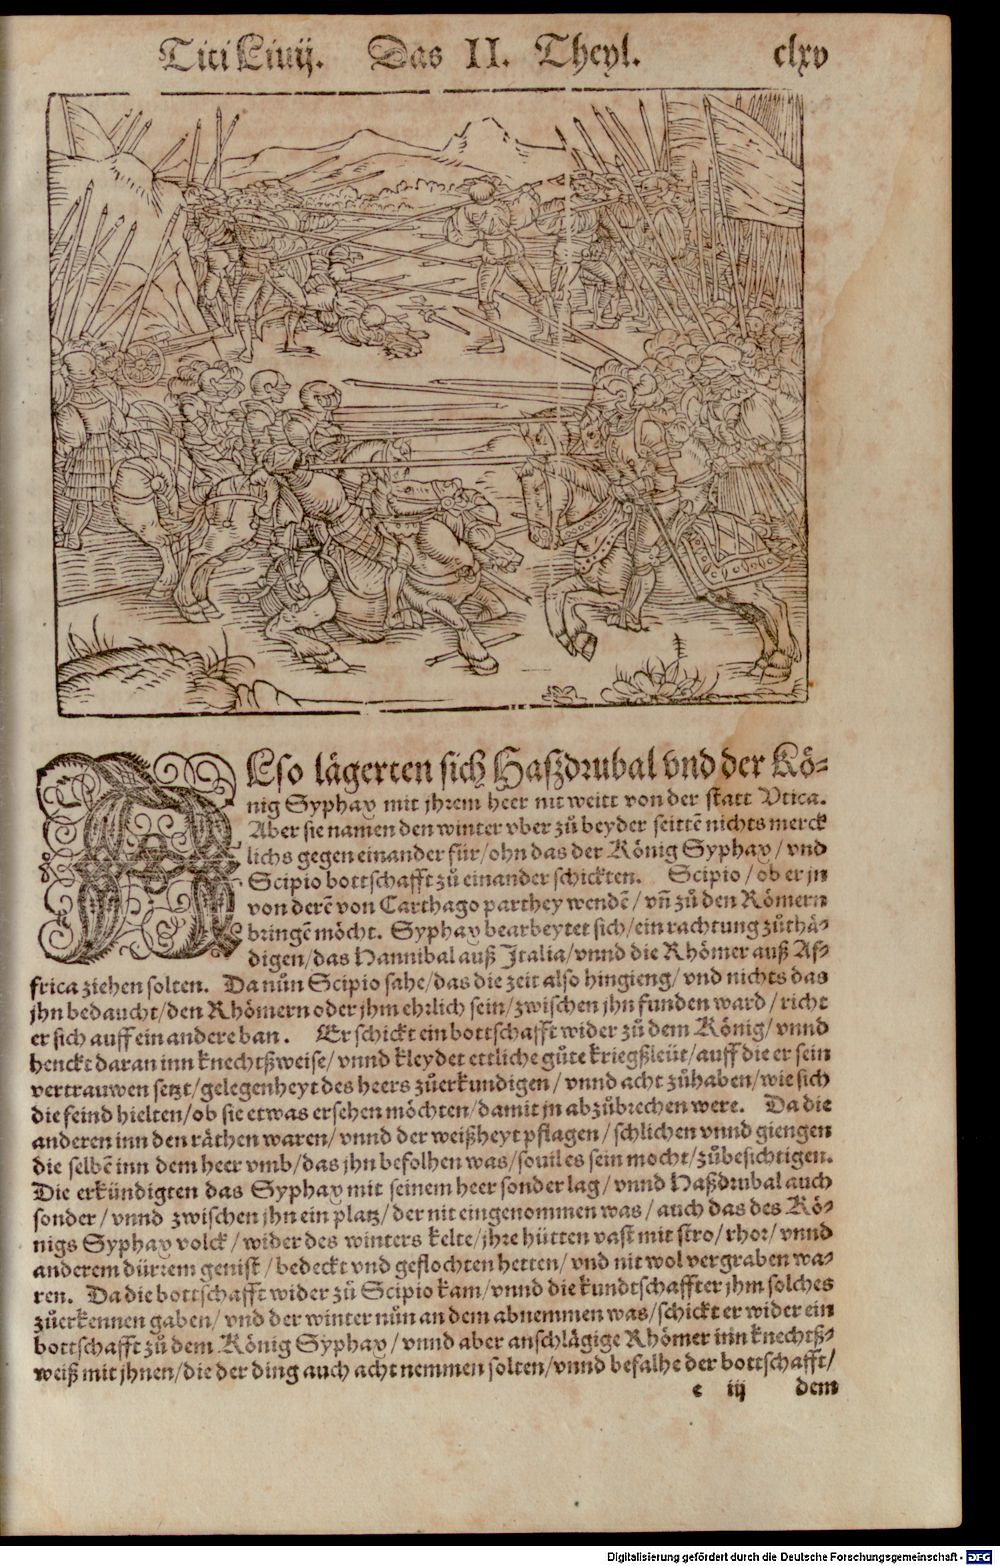 Titi Liuij. Das II. Theyl. clxv
Alſo lägerten ſich Haßdrubal vnd der Kö-
nig Syphax mit jhrem heer nit weitt von der ſtatt Vtica.
Aber ſie namen den winter vber zů beyder ſeittē nichts merck
lichs gegen einander für / ohn das der König Syphax / vnd
Scipio bottſchafft zů einander ſchickten. Scipio / ob er jn
von derē von Carthago parthey wendē / vñ zů den Römern
bringē möcht. Syphax bearbeytet ſich / ein rachtung zůthä-
digen / das Hannibal auß Italia / vnnd die Rhömer auß Af-
frica ziehen ſolten. Da nůn Scipio ſahe / das die zeit alſo hingieng / vnd nichts das
jhn bedaucht / den Rhömern oder jhm ehrlich ſein / zwiſchen jhn funden ward / richt
er ſich auff ein andere ban. Er ſchickt ein bottſchafft wider zů dem König / vnnd
henckt daran inn knechtßweiſe / vnnd kleydet ettliche gůte kriegßleüt / auff die er ſein
vertrauwen ſetzt / gelegenheyt des heers zůerkundigen / vnnd acht zůhaben / wie ſich
die feind hielten / ob ſie etwas erſehen möchten / damit jn abzůbrechen were. Da die
anderen inn den räthen waren / vnnd der weißheyt pflagen / ſchlichen vnnd giengen
die ſelbē inn dem heer vmb / das jhn befolhen was / ſouil es ſein mocht / zůbeſichtigen.
Die erkündigten das Syphax mit ſeinem heer ſonder lag / vnnd Haßdrubal auch
ſonder / vnnd zwiſchen jhn ein platz / der nit eingenommen was / auch das des Kö-
nigs Syphax volck / wider des winters kelte / jhre hütten vaſt mit ſtro / rhor / vnnd
anderem dürrem geniſt / bedeckt vnd geflochten hetten / vnd nit wol vergraben wa-
ren. Da die bottſchafft wider zů Scipio kam / vnnd die kundtſchaffter jhm ſolches
zůerkennen gaben / vnd der winter nůn an dem abnemmen was / ſchickt er wider ein
bottſchafft zů dem König Syphax / vnnd aber anſchlägige Rhömer inn knechtß-
weiß mit jhnen / die der ding auch acht nemmen ſolten / vnnd befalhe der bottſchafft /
e iij dem
Digitalisierung gefördert durch die Deutsche Forschungsgemeinschaft - DFG